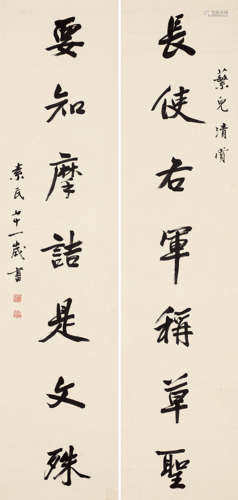 蘩兒清賞
長使右軍稱草聖
要知摩詰是文殊
素民七十一歲書